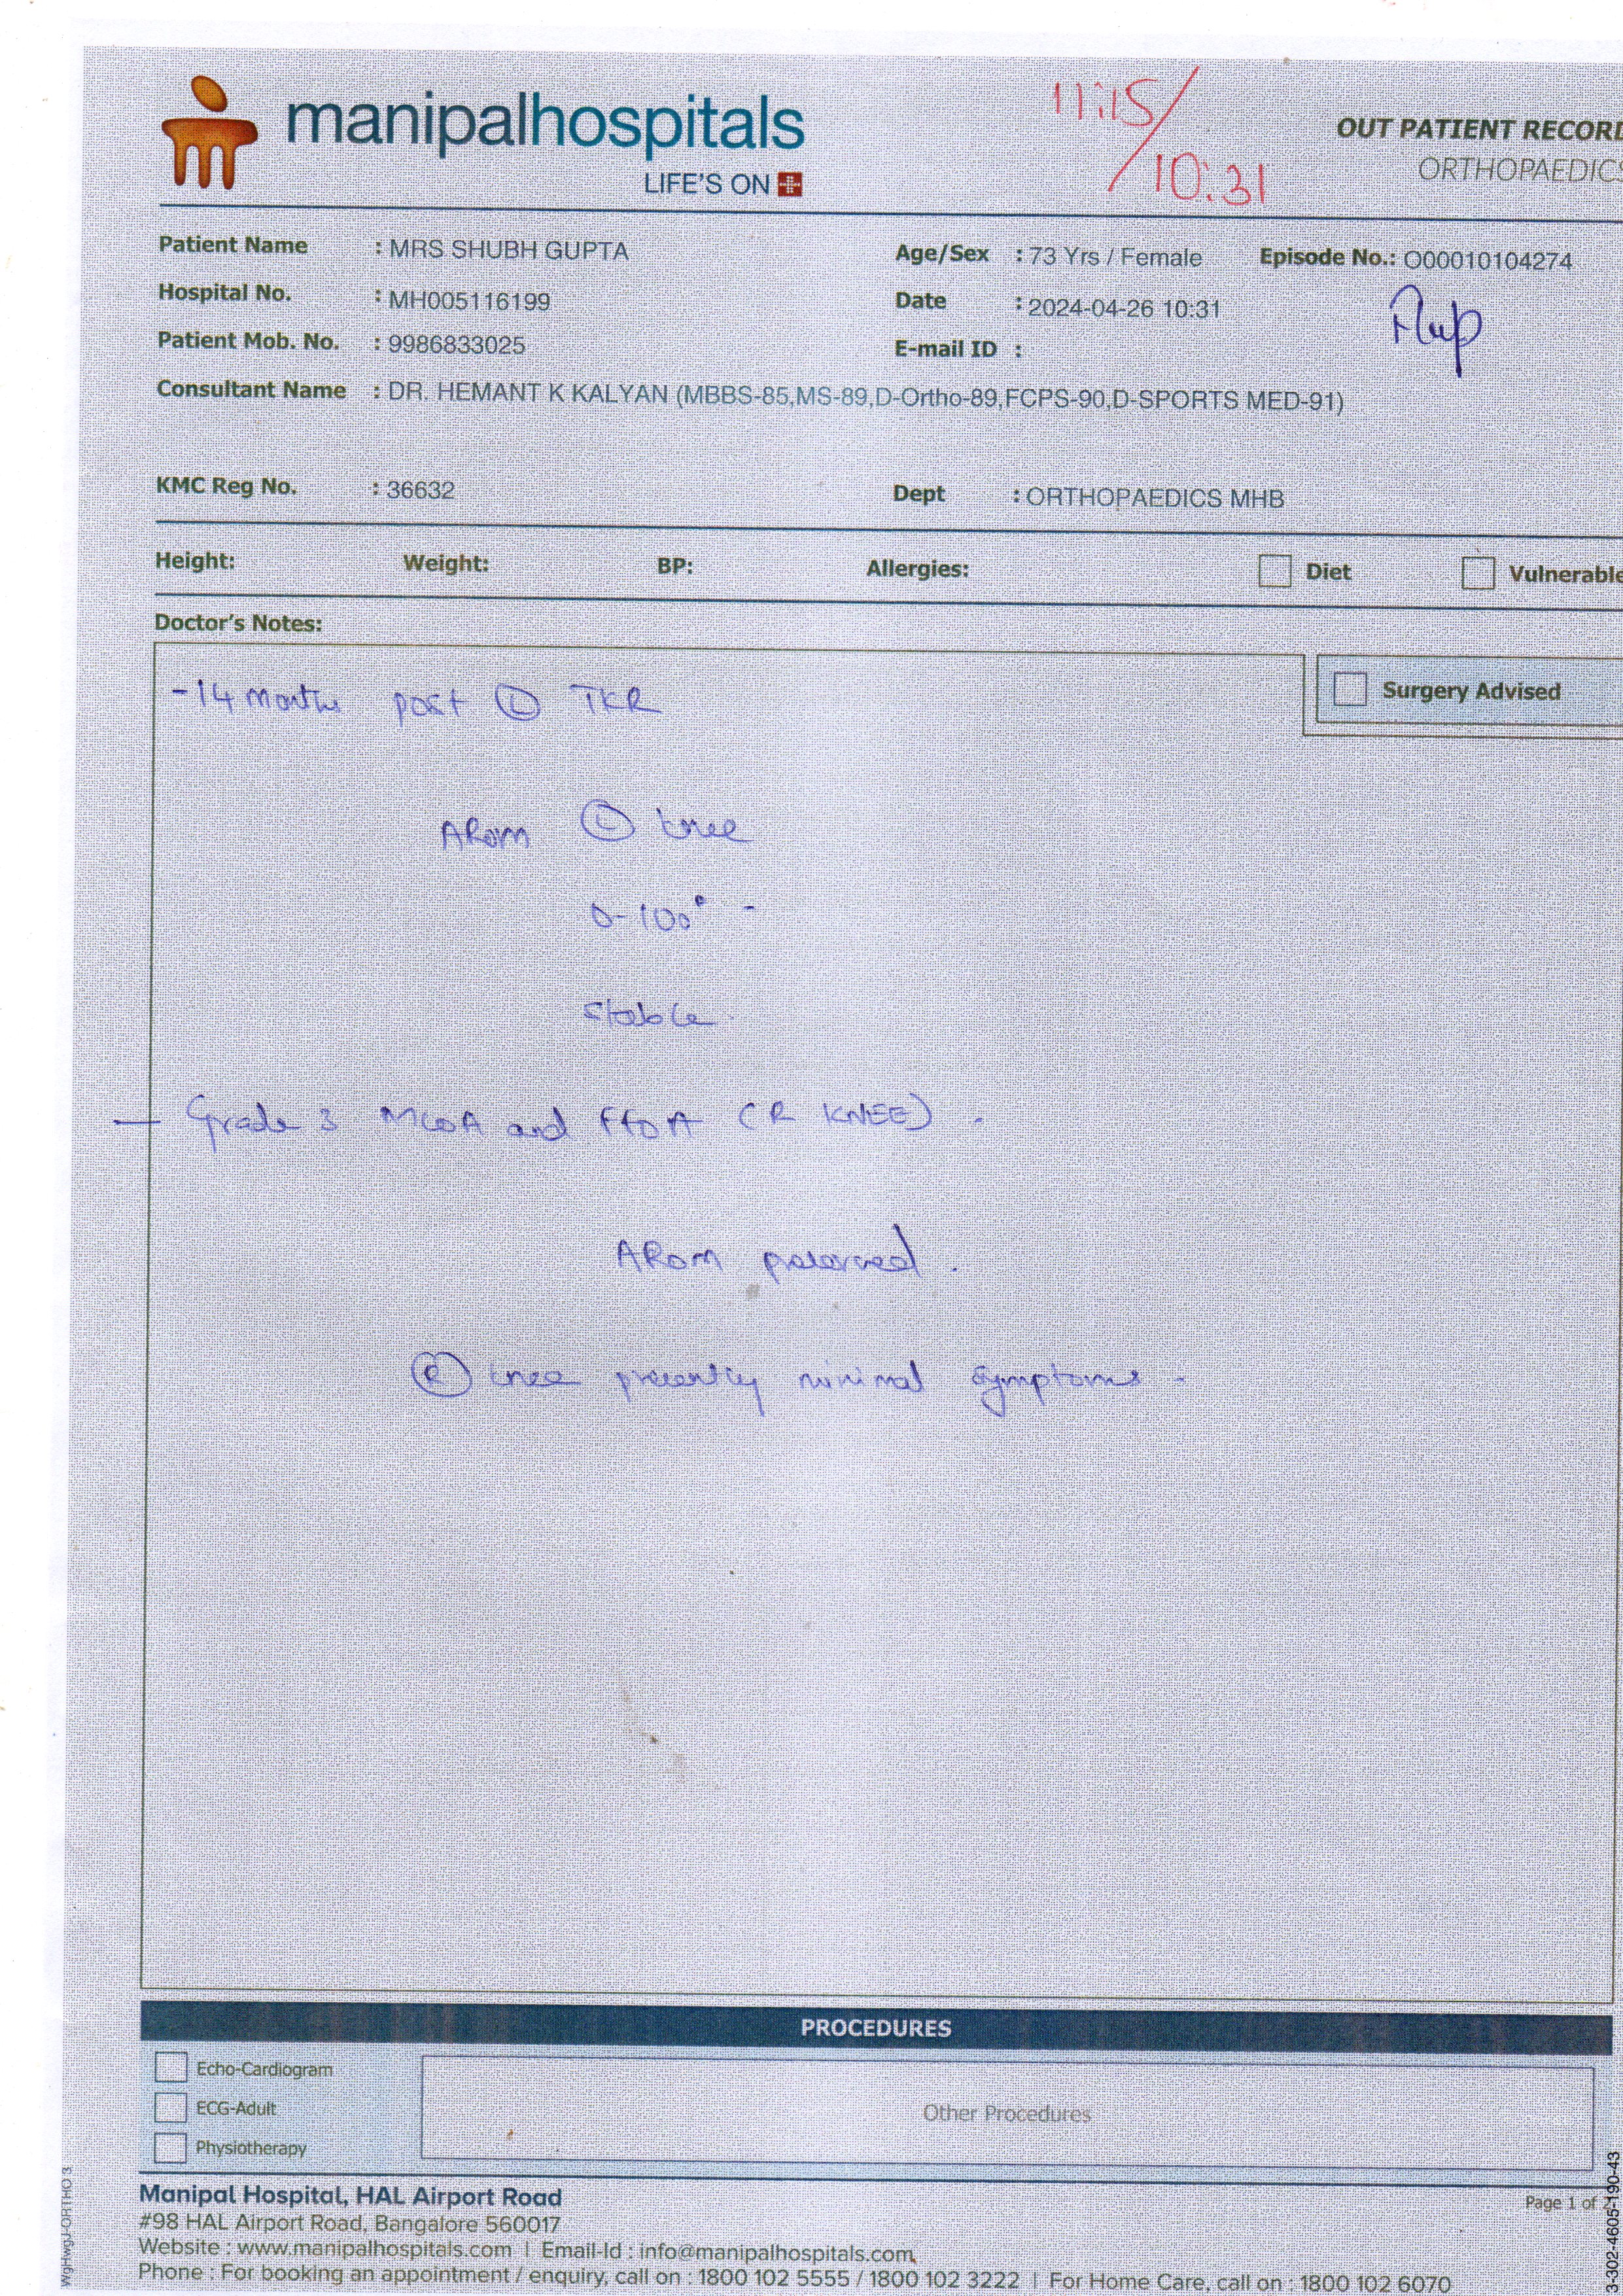 manipalhospitals
LIFE'S ON
11:15/
10:31
OUT PATIENT RECORD
ORTHOPAEDICS
Patient Name : MRS SHUBH GUPTA Age/Sex : 73 Yrs / Female Episode No.: O00010104274
Hospital No. : MH005116199 Date : 2024-04-26 10:31
Patient Mob. No. : 9986833025 E-mail ID :
Consultant Name : DR. HEMANT K KALYAN (MBBS-85,MS-89,D-Ortho-89,FCPS-90,D-SPORTS MED-91)
KMC Reg No. : 36632 Dept : ORTHOPAEDICS MHB
Height: Weight: BP: Allergies: Diet Vulnerable
Doctor's Notes:
Surgery Advised
- 14 months post Ⓛ TKR
AROM Ⓛ knee
0-100° -
Stable
- Grade 3 MCOA and PFOA (R KNEE).
AROM preserved.
Ⓡ knee presently minimal symptoms -
PROCEDURES
Echo-Cardiogram
ECG-Adult
Physiotherapy
Other Procedures
Manipal Hospital, HAL Airport Road
#98 HAL Airport Road, Bangalore 560017
Website : www.manipalhospitals.com | Email-Id : info@manipalhospitals.com
Phone : For booking an appointment / enquiry, call on : 1800 102 5555 / 1800 102 3222 | For Home Care, call on : 1800 102 6070
Page 1 of 2